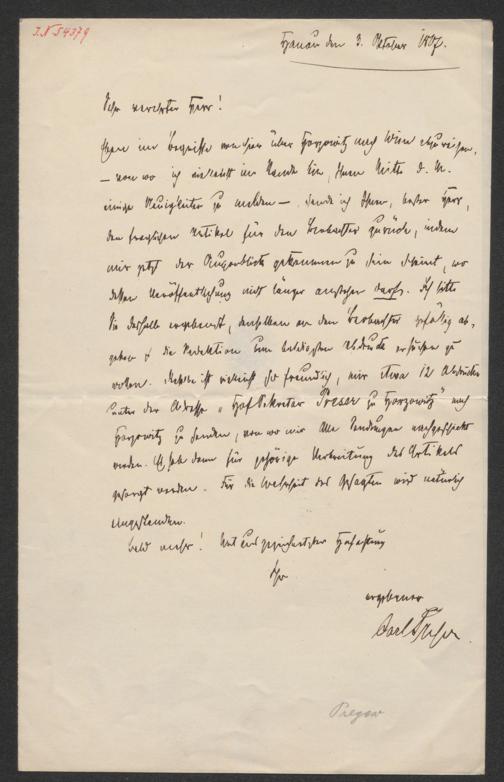 I.N 54379
Hanau den 3. Oktober
Sehr verehrter Herr!
Eben im Begriffe von hier über Horzowitz nach Wien abzureisen,
– von wo ich vielleicht im Stande bin, Ihnen Mitte d. M.
einige Neuigkeiten zu melden – sende ich Ihnen, bester Herr,
den fraglichen Artikel für den Beobachter zurück, indem
mir jetzt der Augenblick gekommen zu sein scheint, wo
dessen Veröffentlichung nicht länger anstehen darf. Ich bitte
Sie deshalb ergebenst, denselben an den Beobachter gefällig ab-
geben & die Redaktion um baldigsten Abdruck ersuchen zu
wollen. ist vielleicht so freundlich, mir etwa 12 Abdrücke
unter der Adresse „Hofsekretär Preser zu Horzowitz“ nach
Horzowitz zu senden, von wo mir alle Sendungen nachgeschickt
werden. Es soll dann für gehörige Verbreitung des Artikels
gesorgt werden. Für die Wahrheit des Gesagten wird natürlich
eingestanden.
Bald mehr! Mit ausgezeichneter Hochachtung
Ihr
ergebener
Carl Preser
Preser